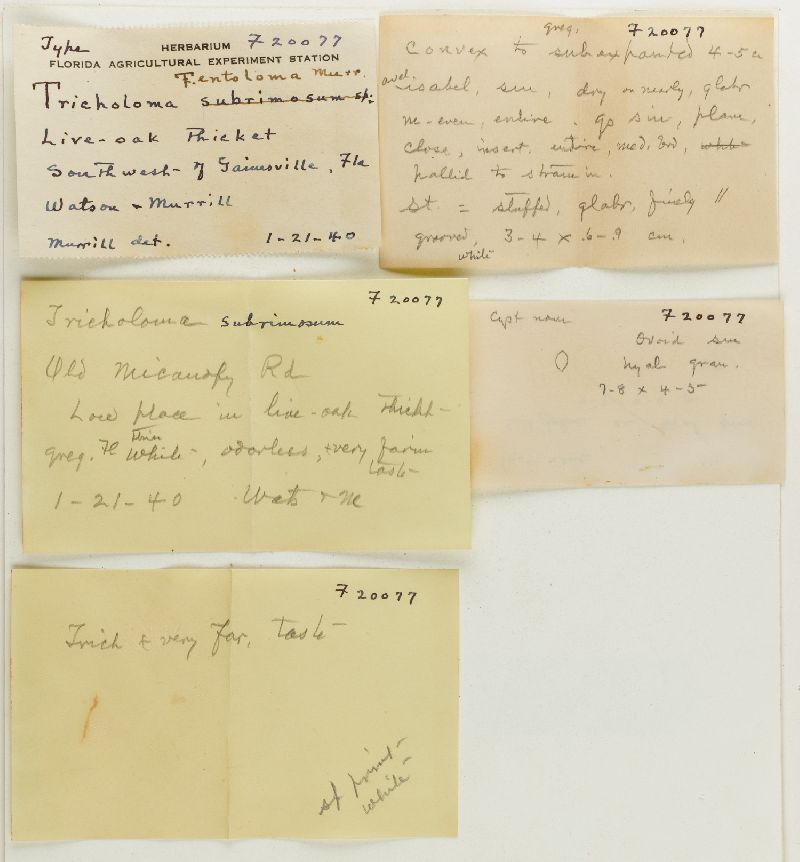 Type HERBARIUM F20077
FLORIDA AGRICULTURAL EXPERIMENT STATION
Fentoloma Murr.
Tricholoma subrimosum sp.
Live-oak Thicket
Southwest of Gainesville, Fla
Watson & Murrill
Murrill det. 1-21-40
greg. F20077
Convex to subexpanded 4-5 c
avel-isabel, sm, dry or nearly, glabr
me-even, entire. go sin, plane,
close, insert. entire, med. brd, white
pallid to stramin.
St. = stuffed, glabr, finely //
grooved, 3-4 x .6-.9 cm.
white
F20077
Tricholoma subrimosum
Old Micanopy Rd
Low place in live-oak thickt
greg. Fl thin white, odorless, & very farin
taste
1-21-40 Wats & Me
Cyst none F20077
Ovoid sm
hyal gran.
7-8 x 4-5
F20077
Trich & very Far, taste
sp print
white